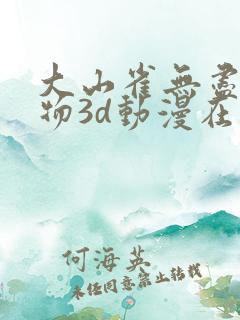 大山雀無盡
物3d動漫在
何海英
未经同意禁止转载